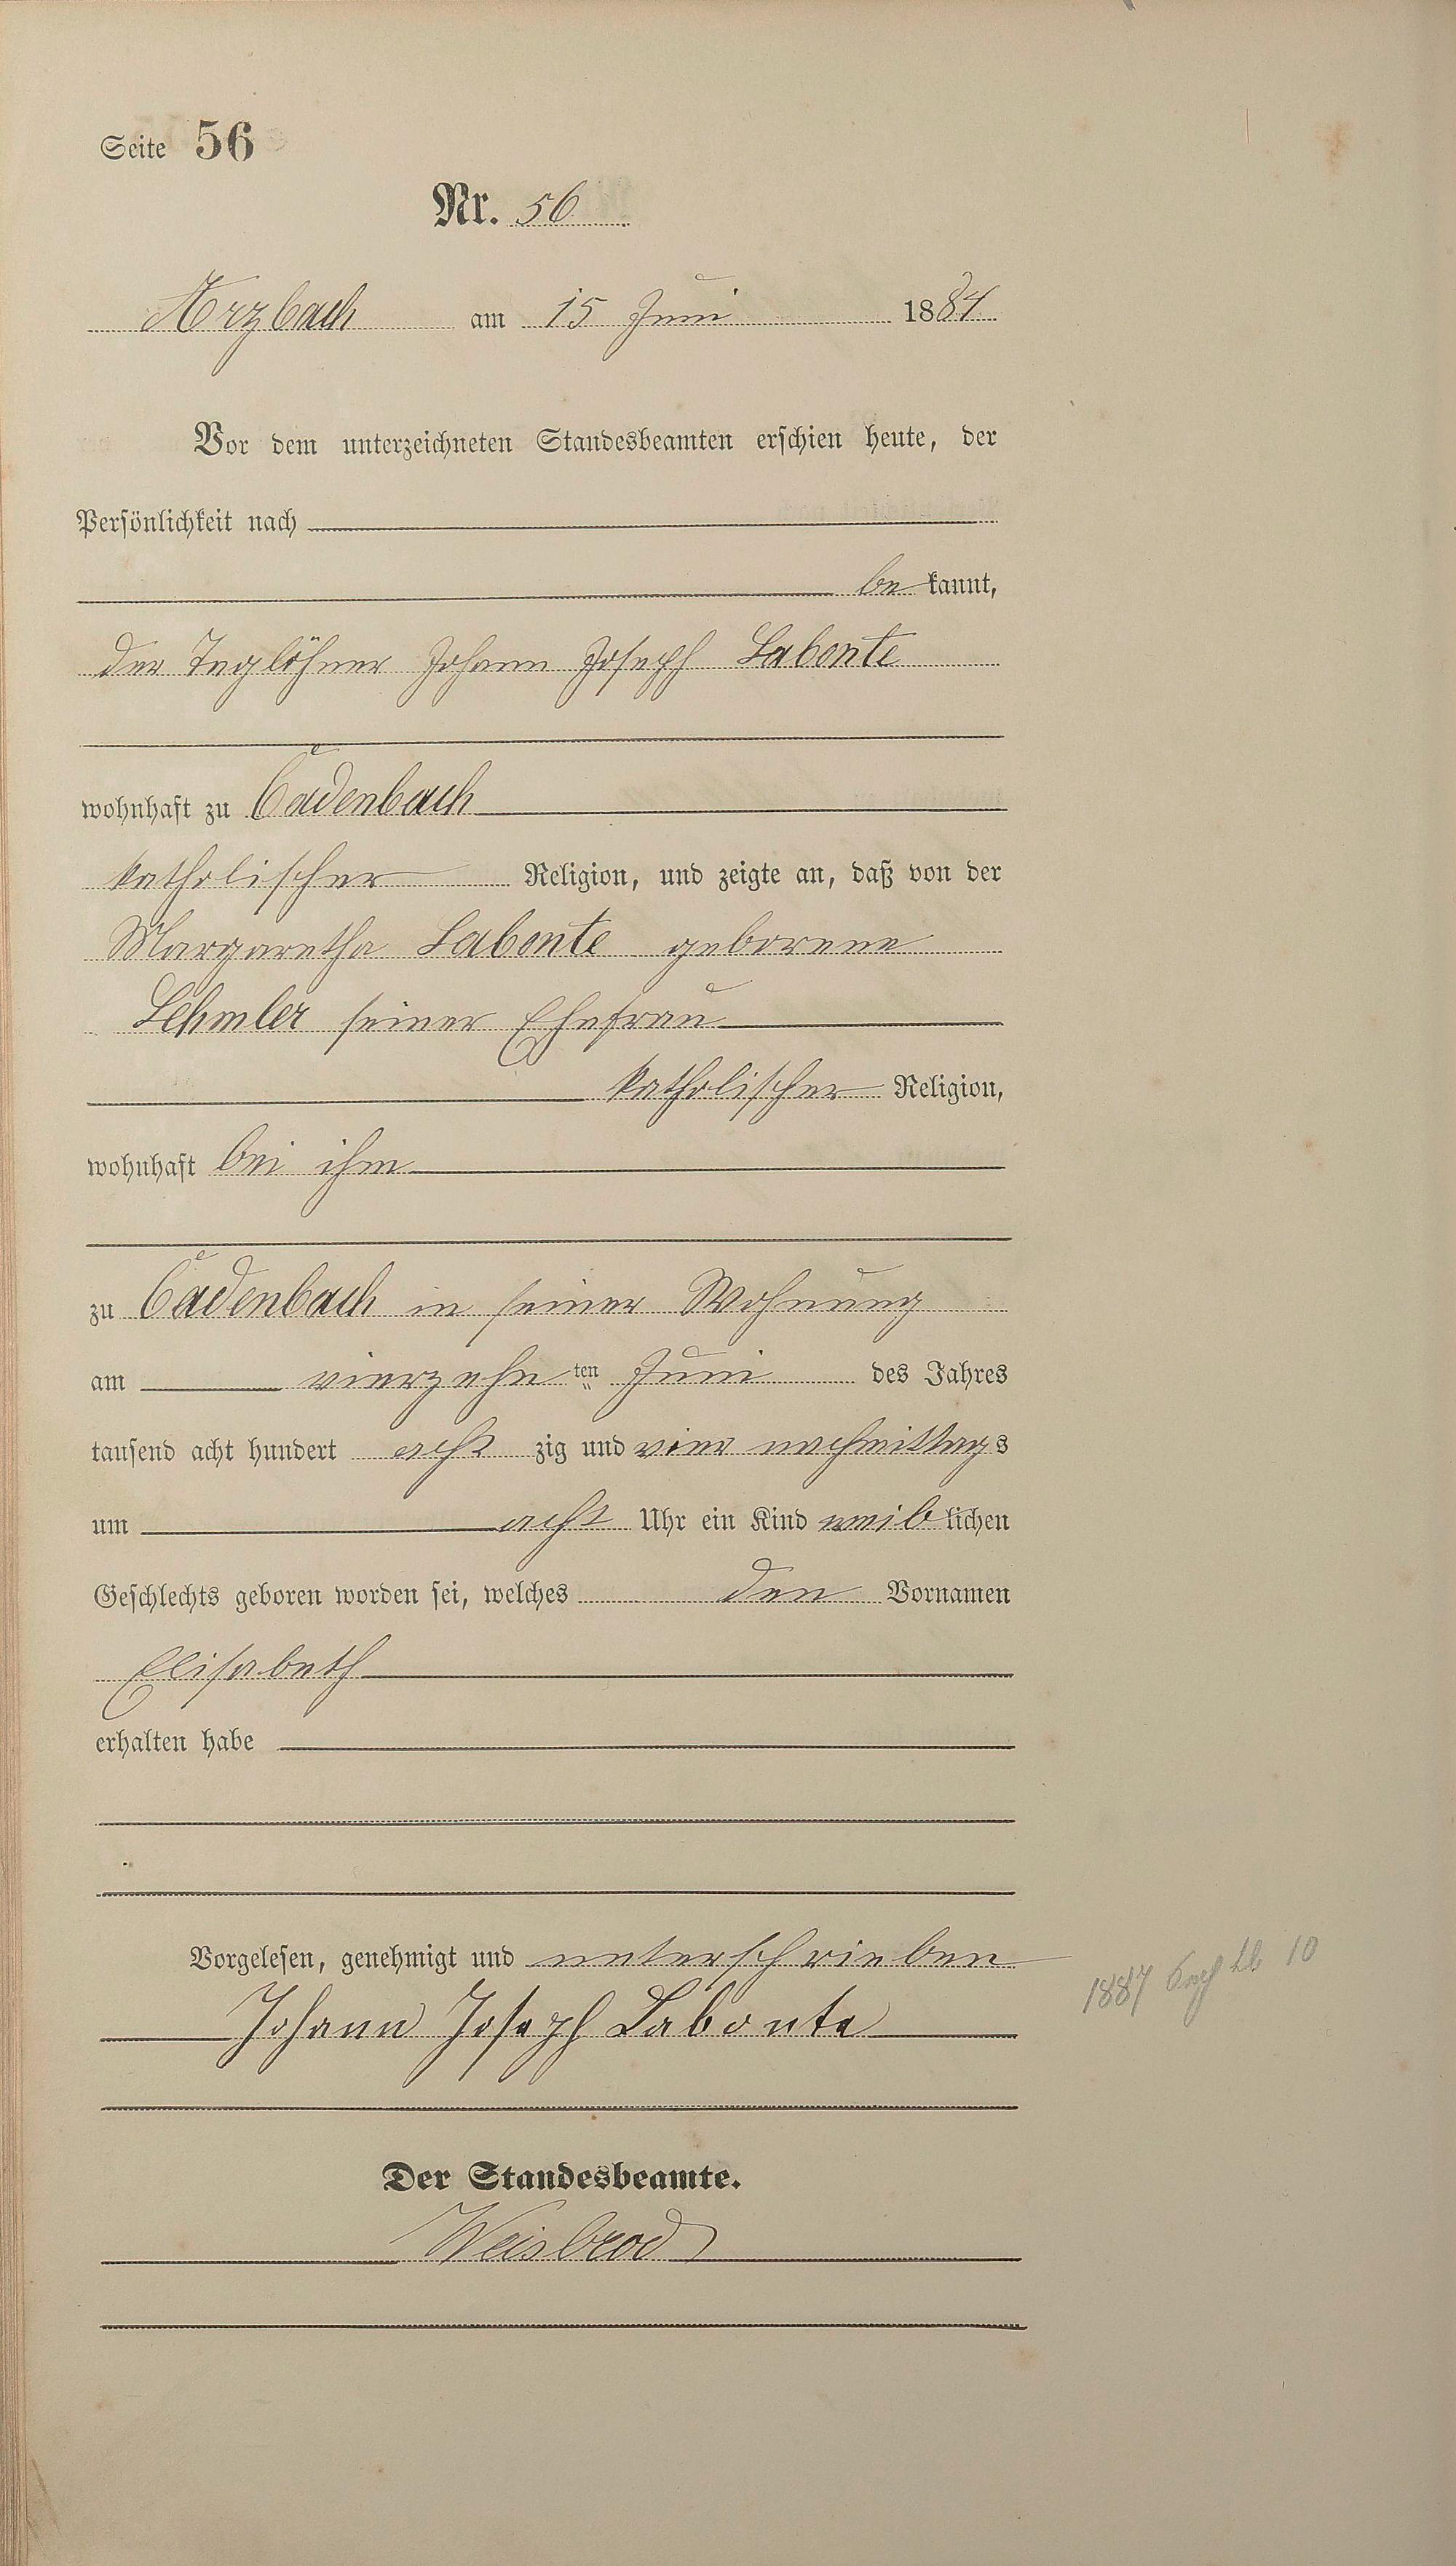 Seite 56
Nr. 56
Arzbach am 15 Juni 1884
Vor dem unterzeichneten Standesbeamten erschien heute, der
Persönlichkeit nach
be kannt,
der Taglöhner Johann Joseph Labonte
wohnhaft zu Cadenbach
katholischer Religion, und zeigte an, daß von der
Margaretha Labonte geborene
Lehmler seiner Ehefrau
katholischer Religion,
wohnhaft bei ihm
zu Cadenbach in seiner Wohnung
am vierzehn ten Juni des Jahres
tausend acht hundert acht zig und vier nachmittags
um acht Uhr ein Kind weib lichen
Geschlechts geboren worden sei, welches den Vornamen
Elisabeth
erhalten habe
Vorgelesen, genehmigt und unterschrieben
Johann Joseph Labonte
1887 10
Der Standesbeamte.
Weisbrod